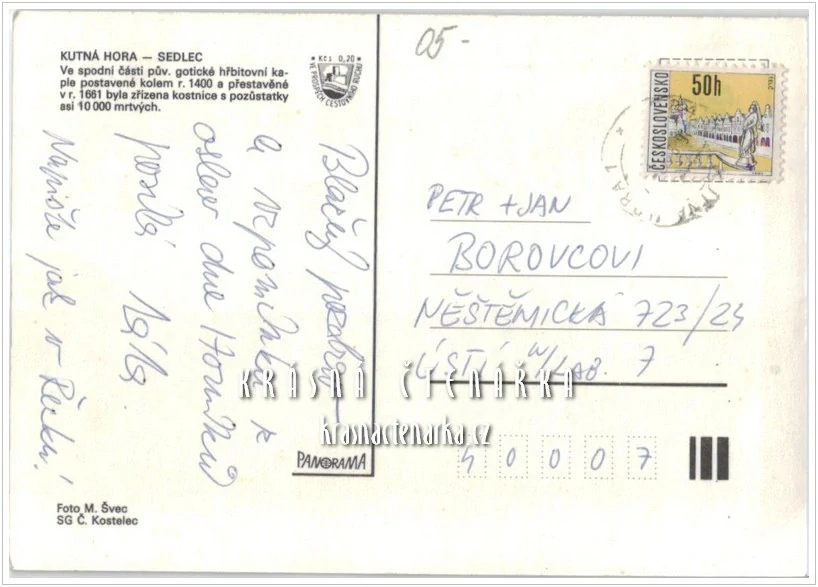 05-
KUTNÁ HORA — SEDLEC
Ve spodní části pův. gotické hřbitovní ka-
ple postavené kolem r. 1400 a přestavěné
v r. 1661 byla zřízena kostnice s pozůstatky
asi 10 000 mrtvých.
Kčs 0,20
VE PROSPĚCH CESTOVNÍHO RUCHU
ČESKOSLOVENSKO
50h
TELČ
pozdrav
a vzpomínku z
oslav dne Horníků
posílá
Napište jak v
PETR + JAN
BOROVCOVI
NĚŠTĚMICKÁ 723/
ÚSTÍ N/LAB. 7
KRÁSNÁ ČTENÁŘKA
krasnactenarka.cz
40007
PANORAMA
Foto M. Švec
SG Č. Kostelec